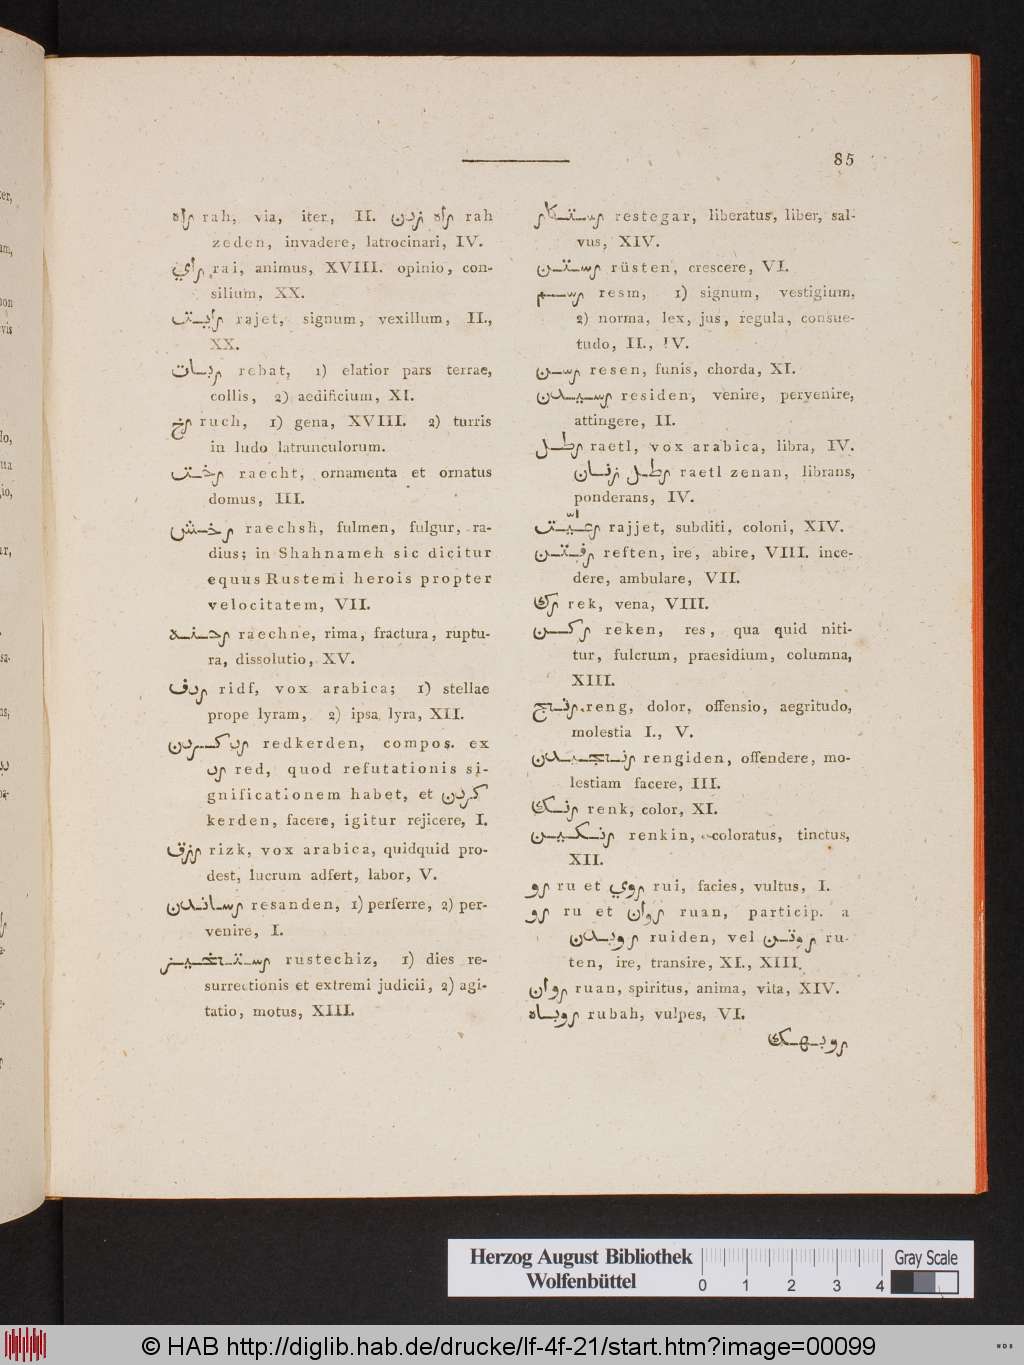 85
راه rah, via, iter, II. راه زدن rah
zeden, invadere, latrocinari, IV.
راي rai, animus, XVIII. opinio, con-
silium, XX.
رايت rajet, signum, vexillum, II.,
XX.
ربات rebat, 1) elatior pars terrae,
collis, 2) aedificium, XI.
رخ ruch, 1) gena, XVIII. 2) turris
in ludo latrunculorum.
رخت raecht, ornamenta et ornatus
domus, III.
رخش raechsh, fulmen, fulgur, ra-
dius; in Shahnameh sic dicitur
equus Rustemi herois propter
velocitatem, VII.
رخنه raechne, rima, fractura, ruptu-
ra, dissolutio, XV.
ردف ridf, vox arabica; 1) stellae
prope lyram, 2) ipsa lyra, XII.
رد كردن redkerden, compos. ex
رد red, quod refutationis si-
gnificationem habet, et كردن
kerden, facere, igitur rejicere, I.
رزق rizk, vox arabica, quidquid pro-
dest, lucrum adfert, labor, V.
رساندن resanden, 1) perferre, 2) per-
venire, I.
رستخيز rustechiz, 1) dies re-
surrectionis et extremi judicii, 2) agi-
tatio, motus, XIII.
رستكار restegar, liberatus, liber, sal-
vus, XIV.
رستن rüsten, crescere, VI.
رسم resm, 1) signum, vestigium,
2) norma, lex, jus, regula, consue-
tudo, II., IV.
رسن resen, funis, chorda, XI.
رسيدن residen, venire, pervenire,
attingere, II.
رطل raetl, vox arabica, libra, IV.
رطل زنان raetl zenan, librans,
ponderans, IV.
رعيّت rajjet, subditi, coloni, XIV.
رفتن reften, ire, abire, VIII. ince-
dere, ambulare, VII.
رك rek, vena, VIII.
ركن reken, res, qua quid niti-
tur, fulcrum, praesidium, columna,
XIII.
رنج reng, dolor, offensio, aegritudo,
molestia I., V.
رنجيدن rengiden, offendere, mo-
lestiam facere, III.
رنك renk, color, XI.
رنكين renkin, coloratus, tinctus,
XII.
رو ru et روي rui, facies, vultus, I.
رو ru et روان ruan, particip. a
رويدن ruiden, vel روتن ru-
ten, ire, transire, XI., XIII.
روان ruan, spiritus, anima, vita, XIV.
روباه rubah, vulpes, VI.
روبهك
Herzog August Bibliothek
Wolfenbüttel
0 1 2 3 4
Gray Scale
© HAB http://diglib.hab.de/drucke/lf-4f-21/start.htm?image=00099